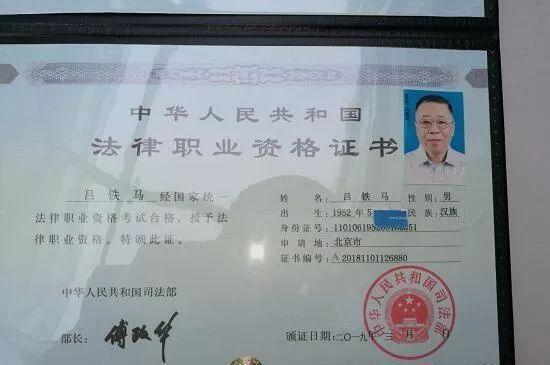 中华人民共和国
法律职业资格证书
吕铁马 经国家统一
法律职业资格考试合格，授予法
律职业资格。特颁此证。
中华人民共和国司法部
部长：傅政华
姓名：吕铁马 性别：男
出生：1952年5 民族：汉族
身份证号：
申请地：北京市
证书编号：A20181101126880
颁证日期：二〇一九年三月 日
中华人民共和国司法部